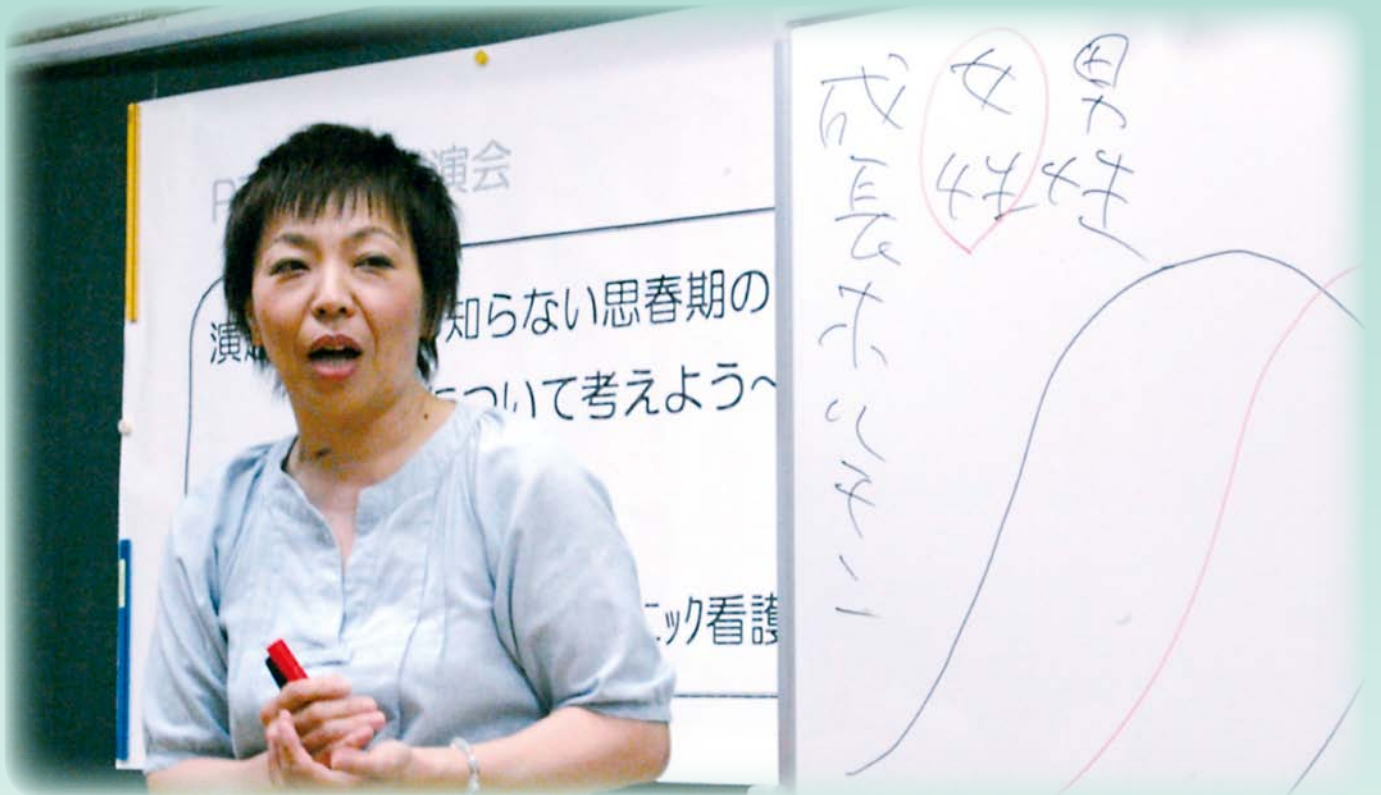 演会
知らない思春期の
について考えよう~
ニック看護
男性
女性
成長ホルモン